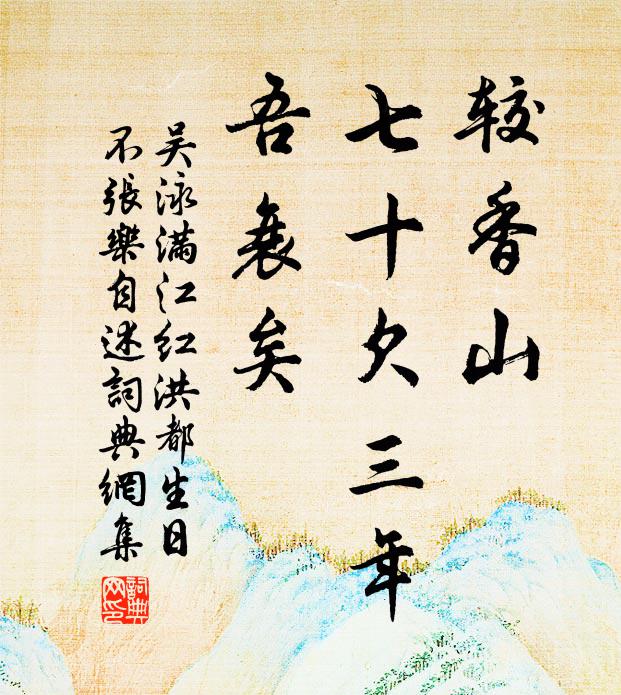 較香山
七十欠三年
吾衰矣
吴泳满江红洪都生日
不張樂自述詞典網集
詞典
网印